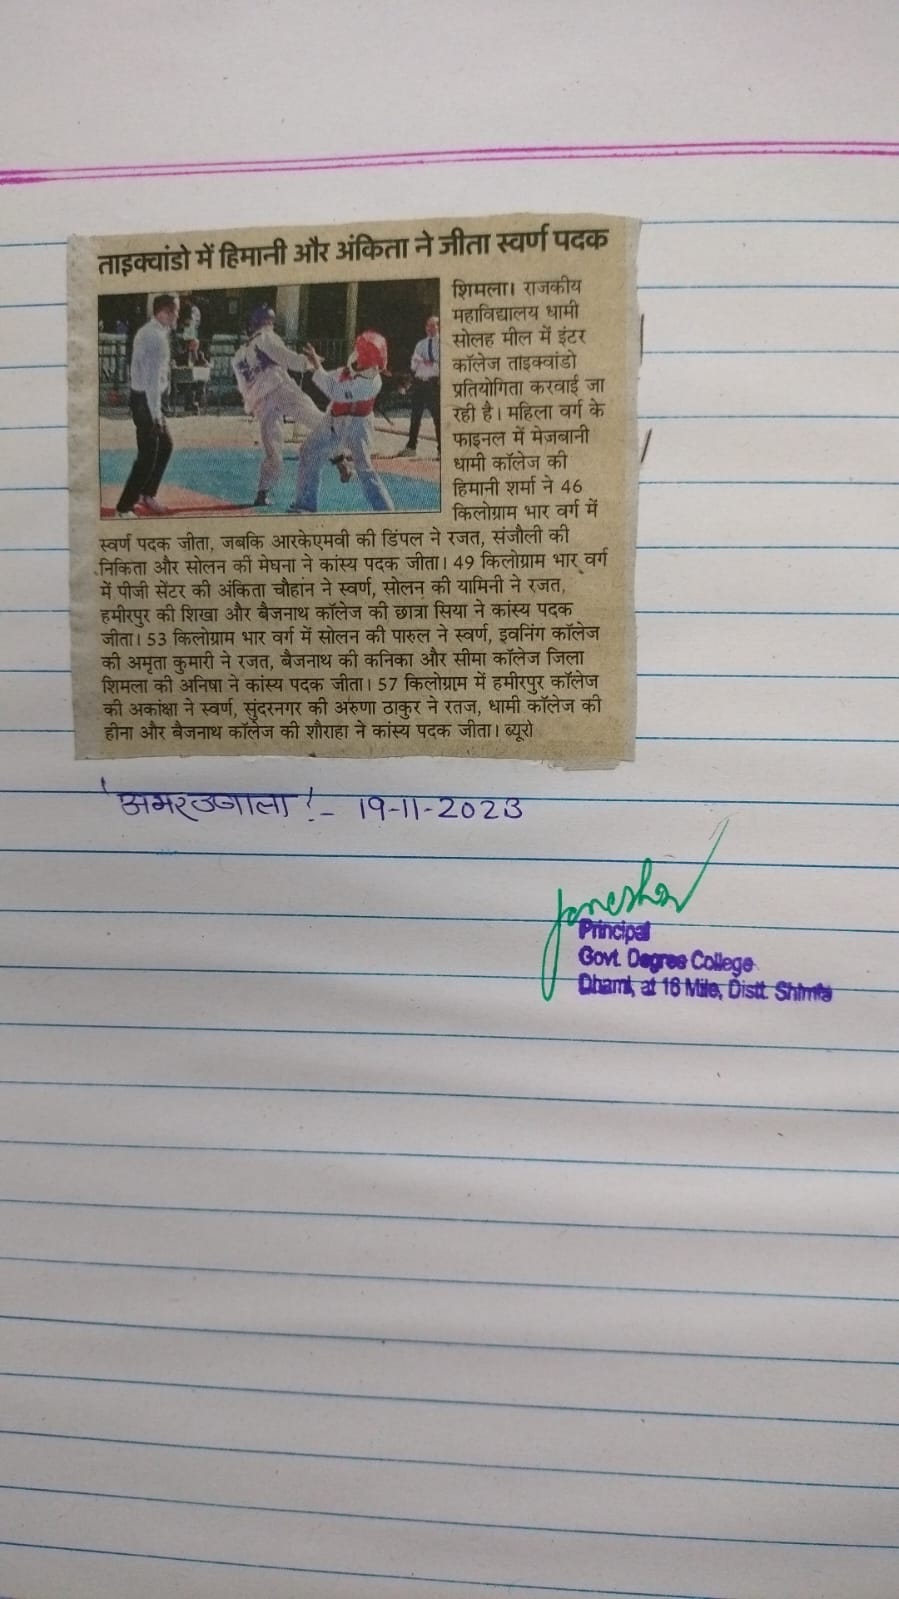 ताइक्वांडो में हिमानी और अंकिता ने जीता स्वर्ण पदक
शिमला। राजकीय
महाविद्यालय धामी
सोलह मील में इंटर
कॉलेज ताइक्वांडो
प्रतियोगिता करवाई जा
रही है। महिला वर्ग के
फाइनल में मेजबानी
धामी कॉलेज की
हिमानी शर्मा ने 46
किलोग्राम भार वर्ग में
स्वर्ण पदक जीता, जबकि आरकेएमवी की डिंपल ने रजत, संजौली की
निकिता और सोलन की मेघना ने कांस्य पदक जीता। 49 किलोग्राम भार वर्ग
में पीजी सेंटर की अंकिता चौहान ने स्वर्ण, सोलन की यामिनी ने रजत,
हमीरपुर की शिखा और बैजनाथ कॉलेज की छात्रा सिया ने कांस्य पदक
जीता। 53 किलोग्राम भार वर्ग में सोलन की पारुल ने स्वर्ण, इवनिंग कॉलेज
की अमृता कुमारी ने रजत, बैजनाथ की कनिका और सीमा कॉलेज जिला
शिमला की अनिषा ने कांस्य पदक जीता। 57 किलोग्राम में हमीरपुर कॉलेज
की अकांक्षा ने स्वर्ण, सुंदरनगर की अरुणा ठाकुर ने रतज, धामी कॉलेज की
हीना और बैजनाथ कॉलेज की शौराहा ने कांस्य पदक जीता। ब्यूरो
'अमरउजाला'- 19-11-2023
Principal
Govt. Degree College
Dhami, at 16 Mile, Distt. Shimla